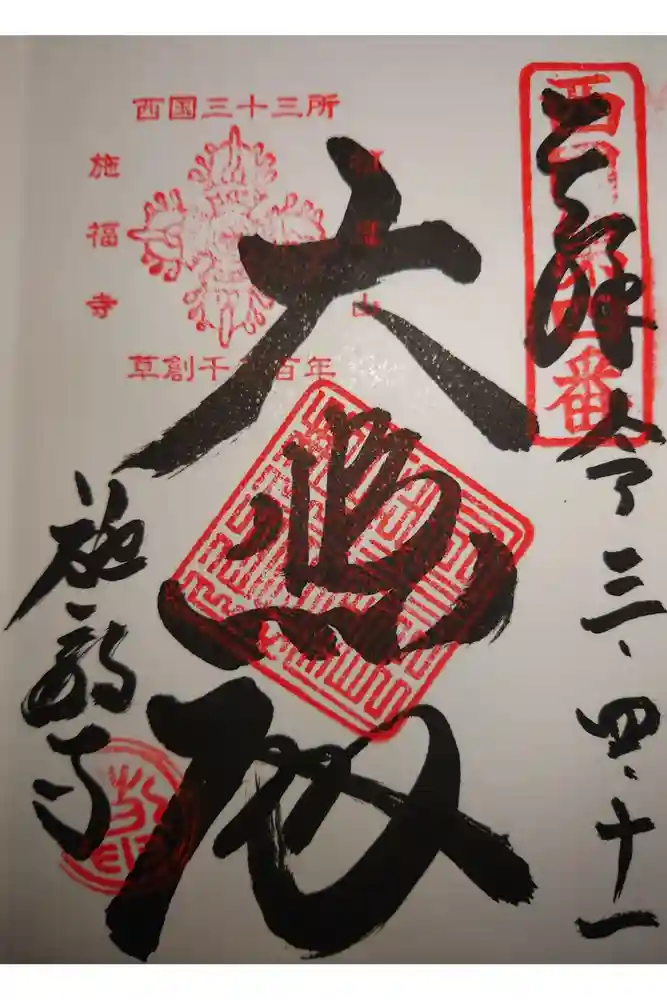 西国第四番
奉拝
令三、四、十一
西国三十三所
山
施福寺
草創千三百年
大悲殿
施福寺